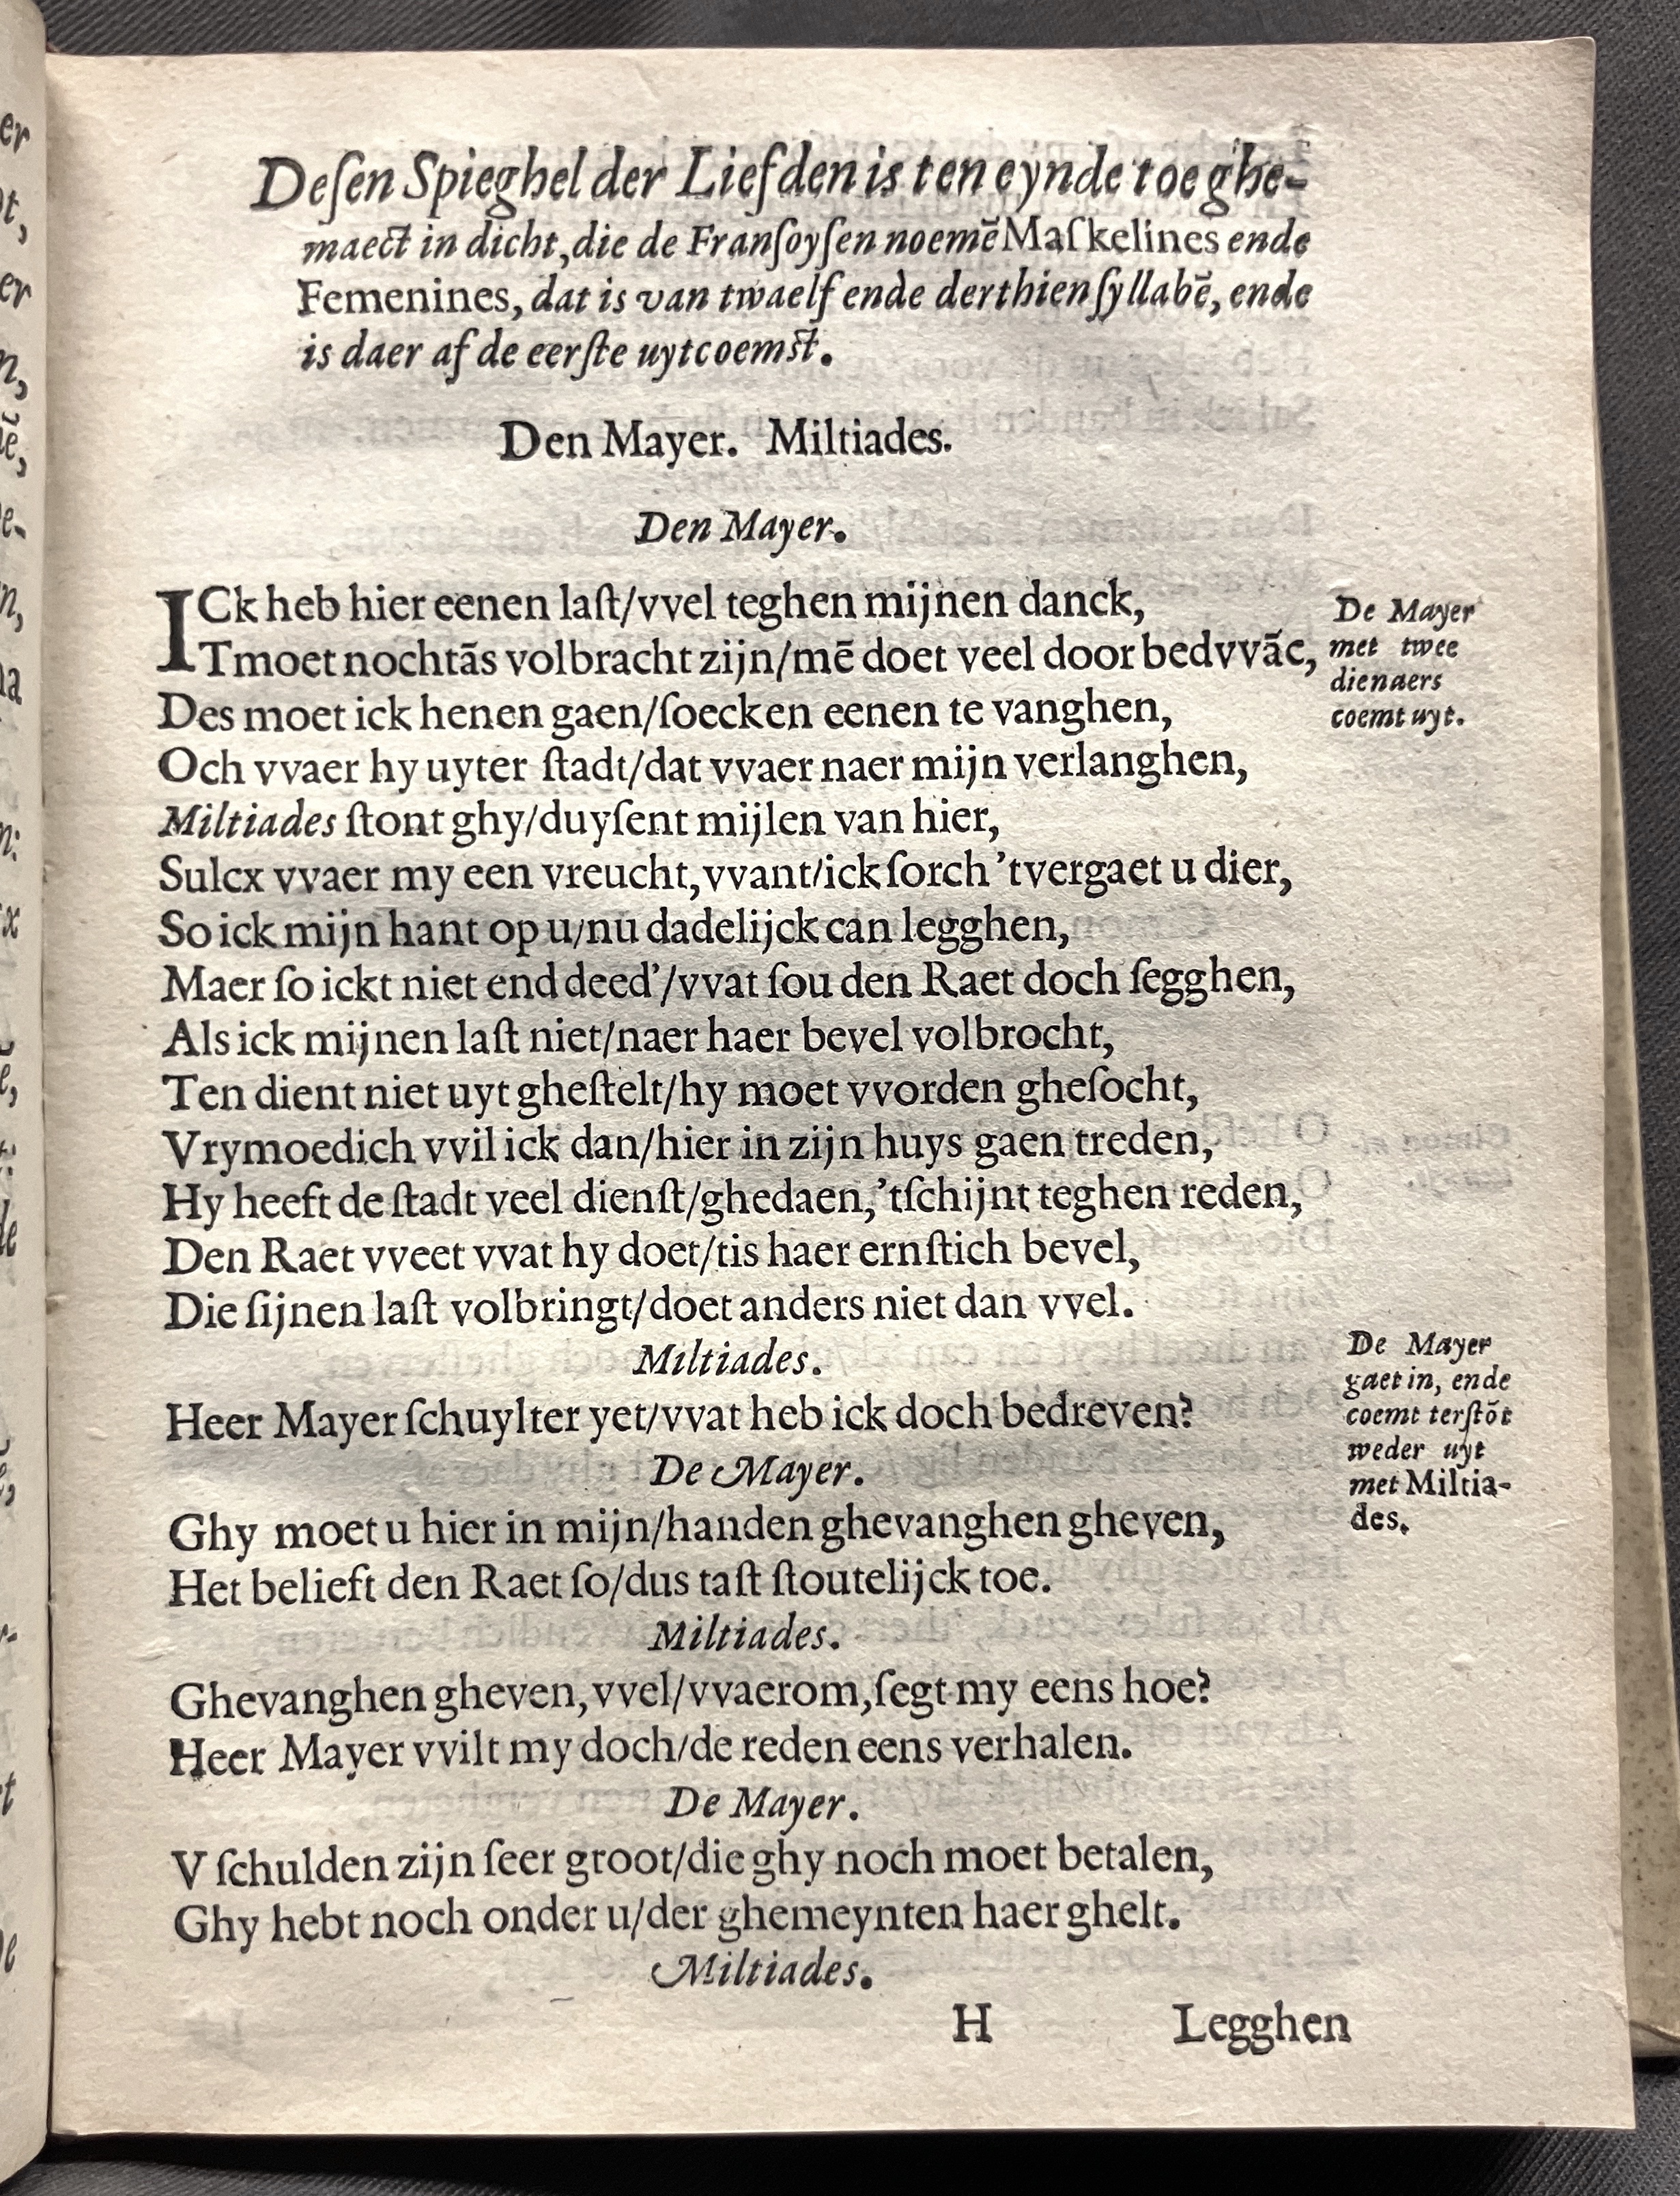 Deſen Spieghel der Liefden is ten eynde toe ghe-
maect in dicht, die de Franſoyſen noemē Maſkelines ende
Femenines, dat is van twaelf ende derthien ſyllabē, ende
is daer af de eerſte uytcoemſt.
Den Mayer. Miltiades.
Den Mayer.
ICk heb hier eenen laſt/vvel teghen mijnen danck,
Tmoet nochtās volbracht zijn/mē doet veel door bedvvāc,
De Mayer
met twee
dienaers
coemt uyt.
Des moet ick henen gaen/ſoecken eenen te vanghen,
Och vvaer hy uyter ſtadt/dat vvaer naer mijn verlanghen,
Miltiades ſtont ghy/duyſent mijlen van hier,
Sulcx vvaer my een vreucht, vvant/ick ſorch 'tvergaet u dier,
So ick mijn hant op u/nu dadelijck can legghen,
Maer ſo ickt niet end deed'/vvat ſou den Raet doch ſegghen,
Als ick mijnen laſt niet/naer haer bevel volbrocht,
Ten dient niet uyt gheſtelt/hy moet vvorden gheſocht,
Vrymoedich vvil ick dan/hier in zijn huys gaen treden,
Hy heeft de ſtadt veel dienſt/ghedaen, 'tſchijnt teghen reden,
Den Raet vveet vvat hy doet/tis haer ernſtich bevel,
Die ſijnen laſt volbringt/doet anders niet dan vvel.
Miltiades.
De Mayer
gaet in, ende
coemt terſtōt
weder uyt
met Miltia-
des.
Heer Mayer ſchuylter yet/vvat heb ick doch bedreven?
De Mayer.
Ghy moet u hier in mijn/handen ghevanghen gheven,
Het belieft den Raet ſo/dus taſt ſtoutelijck toe.
Miltiades.
Ghevanghen gheven, vvel/vvaerom, ſegt my eens hoe?
Heer Mayer vvilt my doch/de reden eens verhalen.
De Mayer.
V ſchulden zijn ſeer groot/die ghy noch moet betalen,
Ghy hebt noch onder u/der ghemeynten haer ghelt.
Miltiades.
H Legghen